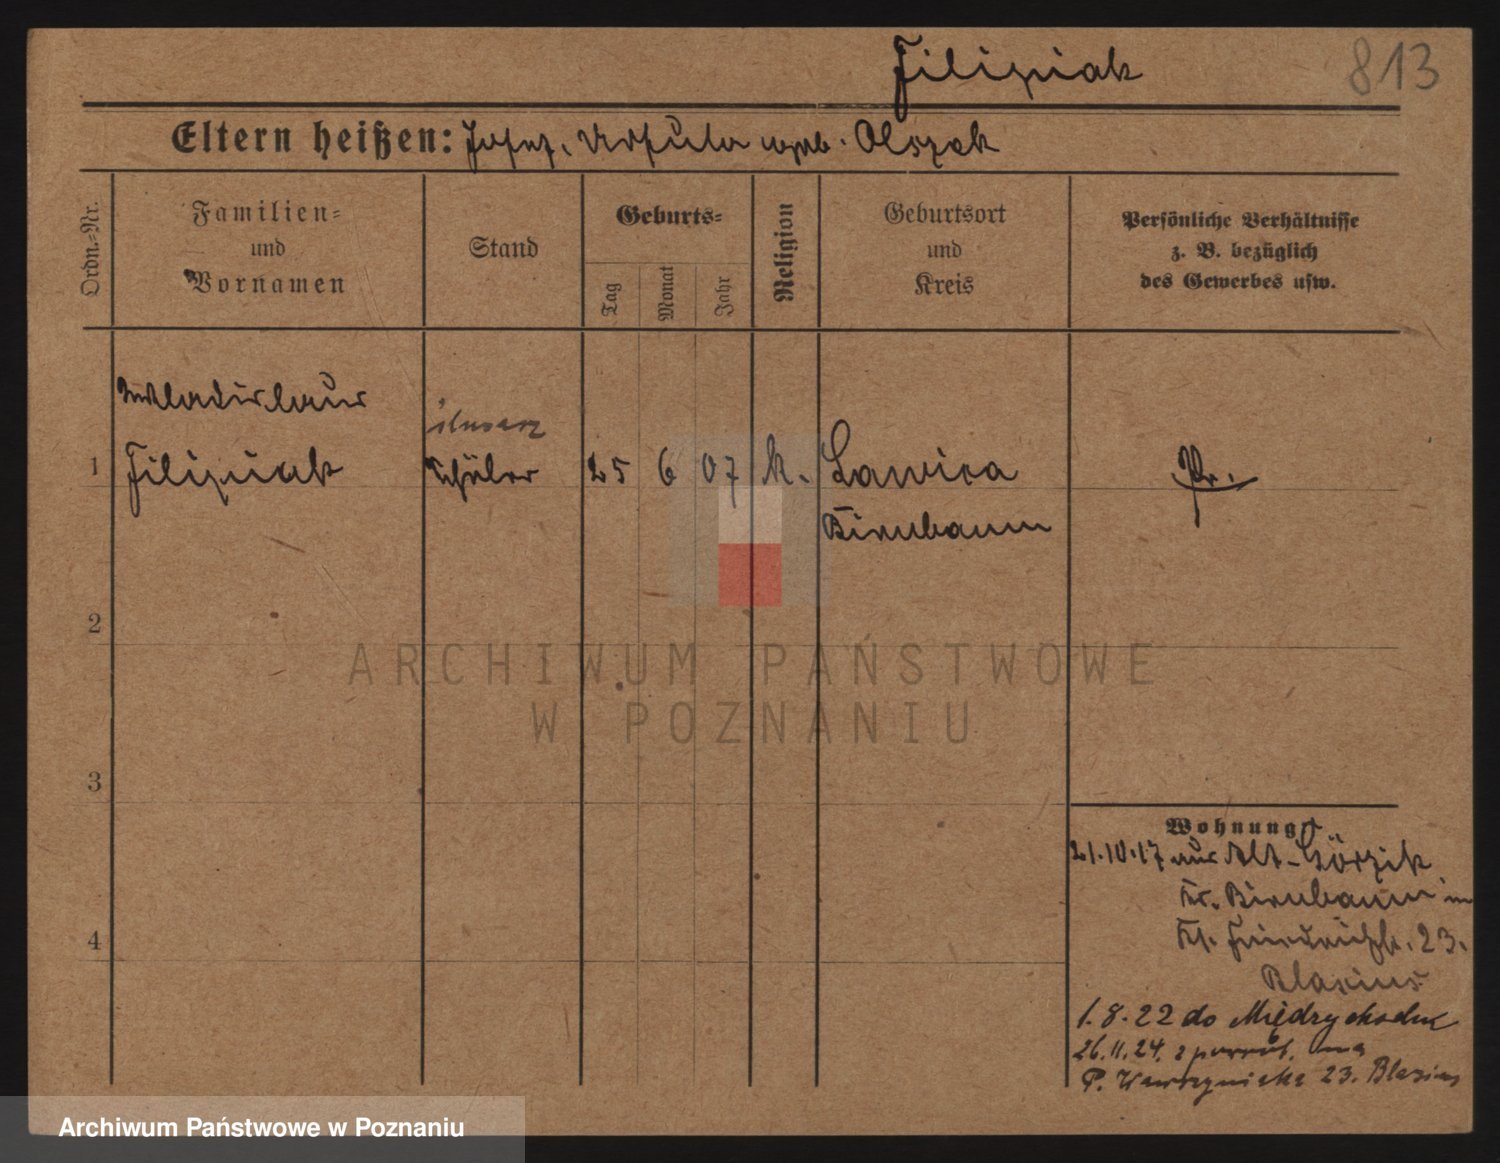 Filipiak
813
Eltern heißen: Josef, Ursula geb. Olszak
Ordn.-Nr.
Familien-
und
Vornamen
Stand
Geburts-
Tag
Monat
Jahr
Religion
Geburtsort
und
Kreis
Persönliche Verhältnisse
z. B. bezüglich
des Gewerbes usw.
Wladislaus
ślusarz
1 Filipiak Schüler 25 6 07 k. Lawica Pr.
Birnbaum
2
ARCHIWUM PAŃSTWOWE
W POZNANIU
3
Wohnung
21.10.17 aus Alt-Görzik
Kr. Birnbaum
Friedrichstr. 23.
4
Blasius
1.8.22 do Międzychodu
26.11.24. z powrót. na
P. Wawrzyniaka 23. Blasius
Archiwum Państwowe w Poznaniu